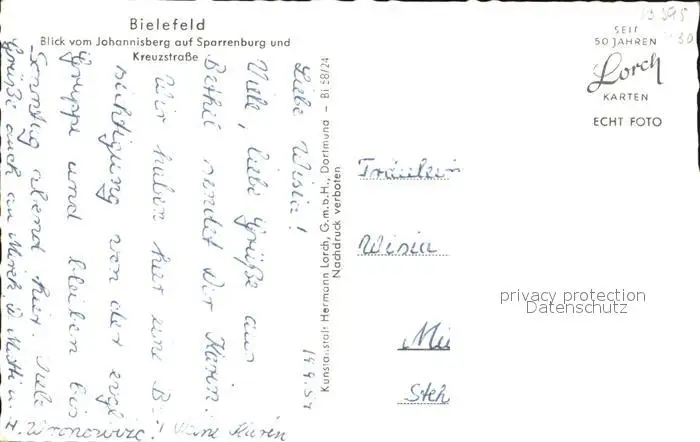 Bielefeld
Blick vom Johannisberg auf Sparrenburg und
Kreuzstraße
SEIT
50 JAHREN
Lorch
KARTEN
ECHT FOTO
Kunstanstalt Hermann Lorch, G.m.b.H., Dortmund – Bi 58/24
Nachdruck verboten
19.4.54
Liebe Wisia!
Viele, liebe Grüße aus
Bethel sendet Dir Karin.
Wir haben hier eine Be
sichtigung von der evgl
Gruppe und bleiben bis
Sonntag abend hier. Viele
Grüße auch an
Deine Karin
Fräulein
Wisia
privacy protection
Datenschutz